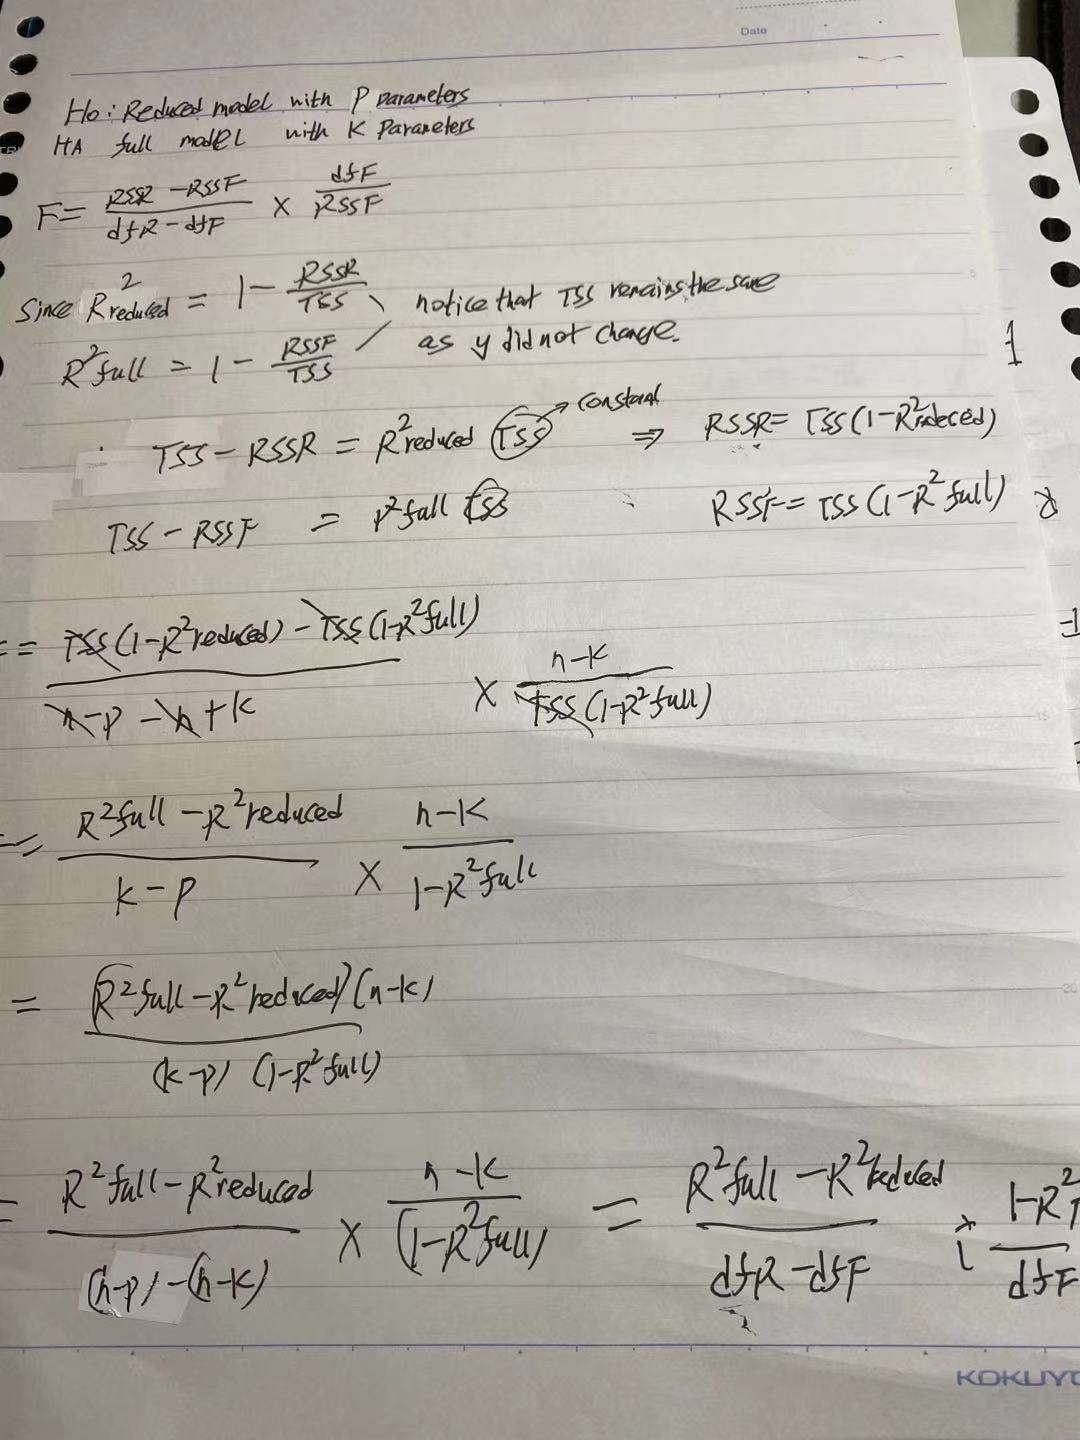 Date
Ho: Reduced model with P parameters
HA full model with K Parameters
F = (RSSR - RSSF)/(dfR - dfF) × dfF/RSSF
Since R²reduced = 1 - RSSR/TSS , notice that TSS remains the same
R²full = 1 - RSSF/TSS / as y did not change.
constant
TSS - RSSR = R²reduced (TSS) ⇒ RSSR = TSS(1-R²redeced)
TSS - RSSF = R²full TSS RSSF = TSS (1-R²full)
= (TSS(1-R²reduced) - TSS(1-R²full))/(n-p-n+k) × (n-k)/(TSS(1-R²full))
= (R²full - R²reduced)/(k-p) × (n-k)/(1-R²full)
= ((R²full - R²reduced)(n-k))/((k-p)(1-R²full))
= (R²full - R²reduced)/((n-p)-(n-k)) × (n-k)/(1-R²full) = (R²full - R²reduced)/(dfR - dfF) ÷ (1-R²)/(dfF)
KOKUYO